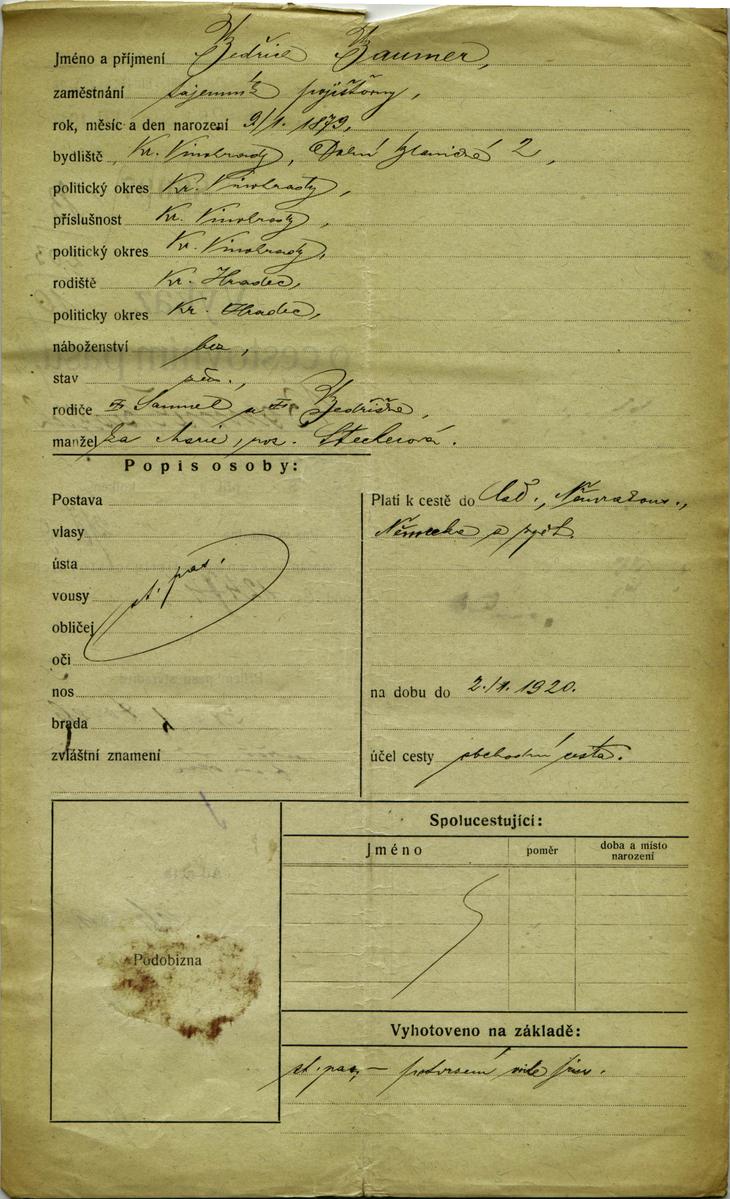 Jméno a příjmení Bedřich Baumer,
zaměstnání tajemník pojišťovny,
rok, měsíc a den narození 9./1. 1879,
bydliště Kr. Vinohrady, Dolní 2,
politický okres Kr. Vinohrady,
příslušnost Kr. Vinohrady,
politický okres Kr. Vinohrady,
rodiště Kr. Hradec,
politicky okres Kr. Hradec,
náboženství bez,
stav žen.,
rodiče Samuel a Bedřiška,
manžel ka Marie, roz. Steckerová.
Popis osoby:
Postava
vlasy
ústa
vousy
obličej
oči
nos
brada
zvláštní znamení
st. pas.
Platí k cestě do Něm. Rakous.,
Německa a zpět.
na dobu do 2./1. 1920.
účel cesty obchodní cesta.
Podobizna
Spolucestující:
Jméno poměr doba a místo narození
Vyhotoveno na základě:
st. pas, — potvrzení